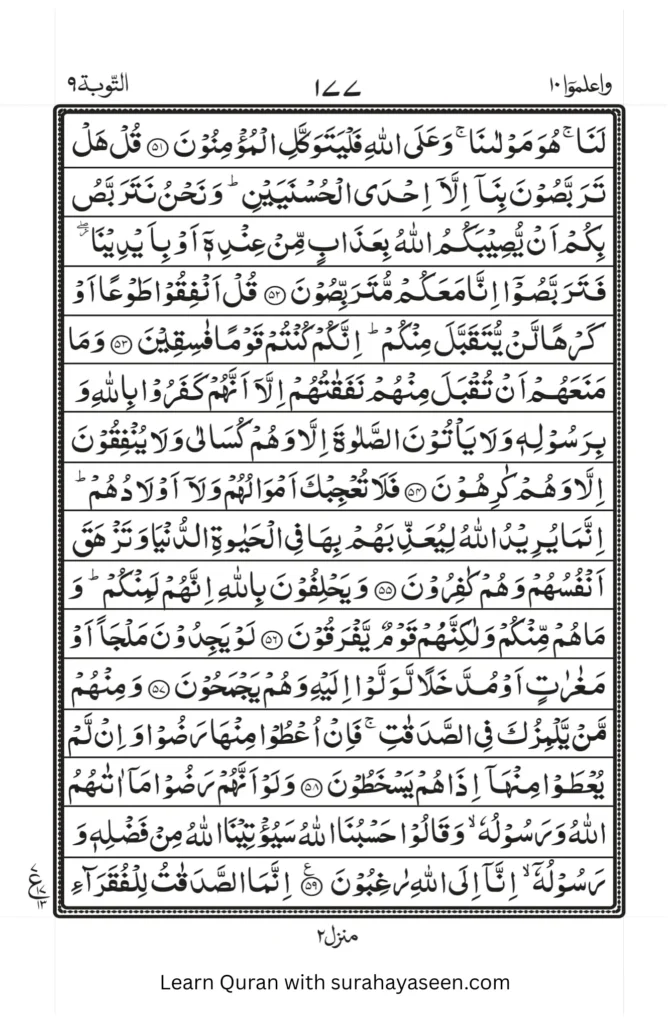 واعلموٓا ١٠
١٧٧
التّوبة ٩
لَنَا ۚ هُوَ مَوْلٰىنَا ۚ وَعَلَى اللّٰهِ فَلْيَتَوَكَّلِ الْمُؤْمِنُوْنَ ﴿٥١﴾ قُلْ هَلْ
تَرَبَّصُوْنَ بِنَاۤ اِلَّاۤ اِحْدَى الْحُسْنَيَيْنِ ؕ وَنَحْنُ نَتَرَبَّصُ
بِكُمْ اَنْ يُّصِيْبَكُمُ اللّٰهُ بِعَذَابٍ مِّنْ عِنْدِهٖۤ اَوْ بِاَيْدِيْنَا ۖ
فَتَرَبَّصُوْۤا اِنَّا مَعَكُمْ مُّتَرَبِّصُوْنَ ﴿٥٢﴾ قُلْ اَنْفِقُوْا طَوْعًا اَوْ
كَرْهًا لَّنْ يُّتَقَبَّلَ مِنْكُمْ ؕ اِنَّكُمْ كُنْتُمْ قَوْمًا فٰسِقِيْنَ ﴿٥٣﴾ وَمَا
مَنَعَهُمْ اَنْ تُقْبَلَ مِنْهُمْ نَفَقٰتُهُمْ اِلَّاۤ اَنَّهُمْ كَفَرُوْا بِاللّٰهِ وَ
بِرَسُوْلِهٖ وَلَا يَاْتُوْنَ الصَّلٰوةَ اِلَّا وَهُمْ كُسَالٰى وَلَا يُنْفِقُوْنَ
اِلَّا وَهُمْ كٰرِهُوْنَ ﴿٥٤﴾ فَلَا تُعْجِبْكَ اَمْوَالُهُمْ وَلَاۤ اَوْلَادُهُمْ ؕ
اِنَّمَا يُرِيْدُ اللّٰهُ لِيُعَذِّبَهُمْ بِهَا فِى الْحَيٰوةِ الدُّنْيَا وَتَزْهَقَ
اَنْفُسُهُمْ وَهُمْ كٰفِرُوْنَ ﴿٥٥﴾ وَيَحْلِفُوْنَ بِاللّٰهِ اِنَّهُمْ لَمِنْكُمْ ؕ وَ
مَا هُمْ مِّنْكُمْ وَلٰكِنَّهُمْ قَوْمٌ يَّفْرَقُوْنَ ﴿٥٦﴾ لَوْ يَجِدُوْنَ مَلْجَاً اَوْ
مَغٰرٰتٍ اَوْ مُدَّخَلًا لَّوَلَّوْا اِلَيْهِ وَهُمْ يَجْمَحُوْنَ ﴿٥٧﴾ وَمِنْهُمْ
مَّنْ يَّلْمِزُكَ فِى الصَّدَقٰتِ ۚ فَاِنْ اُعْطُوْا مِنْهَا رَضُوْا وَاِنْ لَّمْ
يُعْطَوْا مِنْهَاۤ اِذَا هُمْ يَسْخَطُوْنَ ﴿٥٨﴾ وَلَوْ اَنَّهُمْ رَضُوْا مَاۤ اٰتٰىهُمُ
اللّٰهُ وَرَسُوْلُهٗ ۙ وَقَالُوْا حَسْبُنَا اللّٰهُ سَيُؤْتِيْنَا اللّٰهُ مِنْ فَضْلِهٖ وَ
رَسُوْلُهٗۤ ۙ اِنَّاۤ اِلَى اللّٰهِ رٰغِبُوْنَ ﴿٥٩﴾ اِنَّمَا الصَّدَقٰتُ لِلْفُقَرَآءِ
٧
ع
١٧
١٣
منزل ٢
Learn Quran with surahayaseen.com